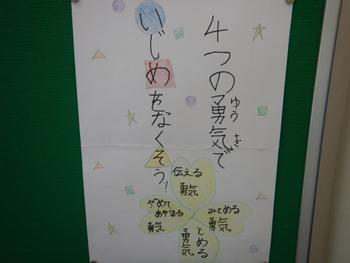 4つの勇気で
ゆうき
いじめをなくそう!
伝える
勇気
みとめる
勇気
やめて
あやまる
勇気
とめる
勇気